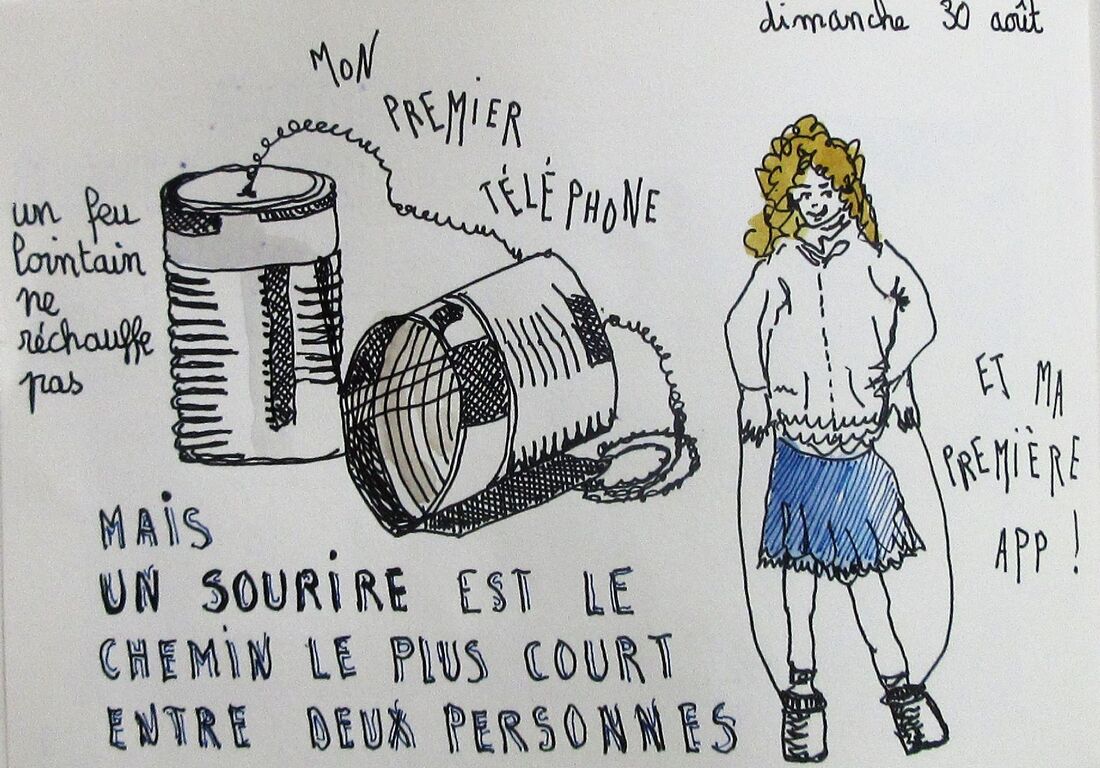 dimanche 30 août
MON
PREMIER
TÉLÉPHONE
un feu
lointain
ne
réchauffe
pas
ET MA
PREMIÈRE
APP !
MAIS
UN SOURIRE EST LE
CHEMIN LE PLUS COURT
ENTRE DEUX PERSONNES